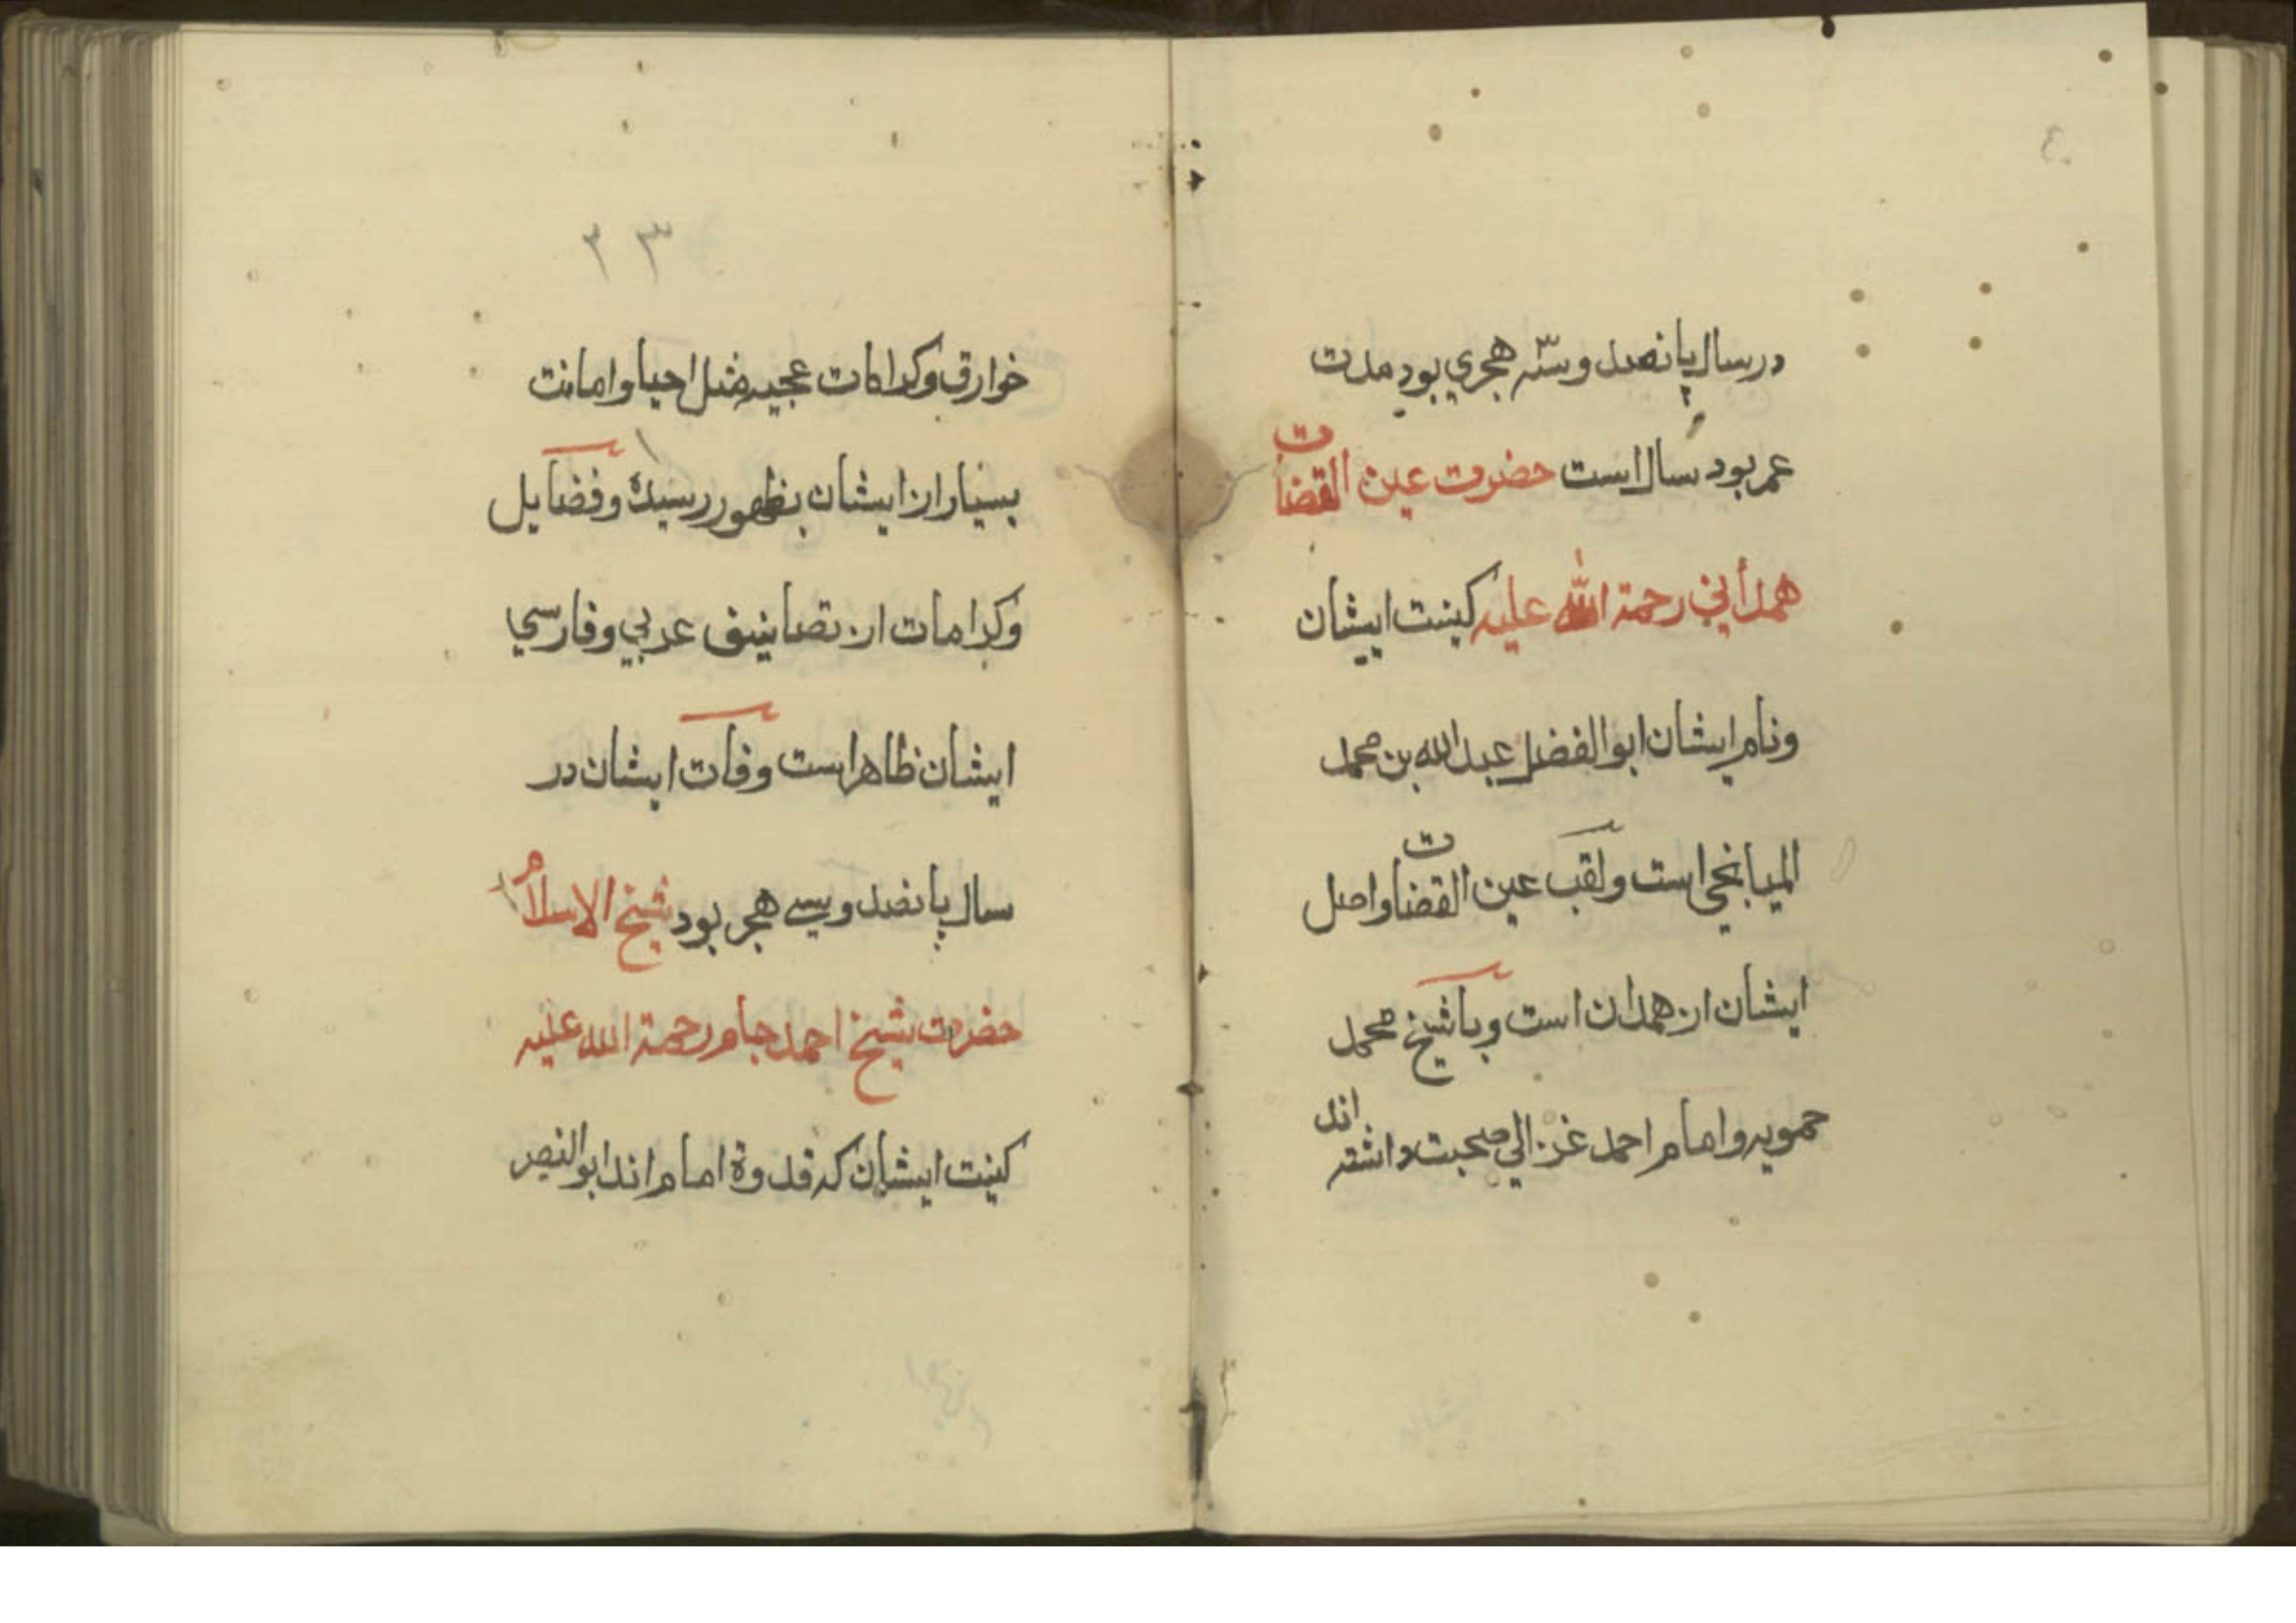 در سال پانصد و سنّه هجري بود مدت
عمر بود سال است حضرت عین القضات
همدأني رحمة الله علیه کینت ایشان
و نام ایشان ابوالفضل عبدالله بن محمد
المیانجي است و لقب عین القضات و اصل
ایشان از همدان است و با شیخ محمد
حمویه و امام احمد غزالي صحبت داشته اند
۳۲
خوارق و کرامات عجیبه مثل احیا و امانت
بسیار از ایشان بظهور رسیده و فضایل
و کرامات از تصانیف عربي و فارسي
ایشان ظاهر است وفات ایشان در
سال پانصد و سی هجر بود شیخ الاسلام
حضرت شیخ احمد جام رحمة الله علیه
کینت ایشان که قدوة امام اند ابوالنصر